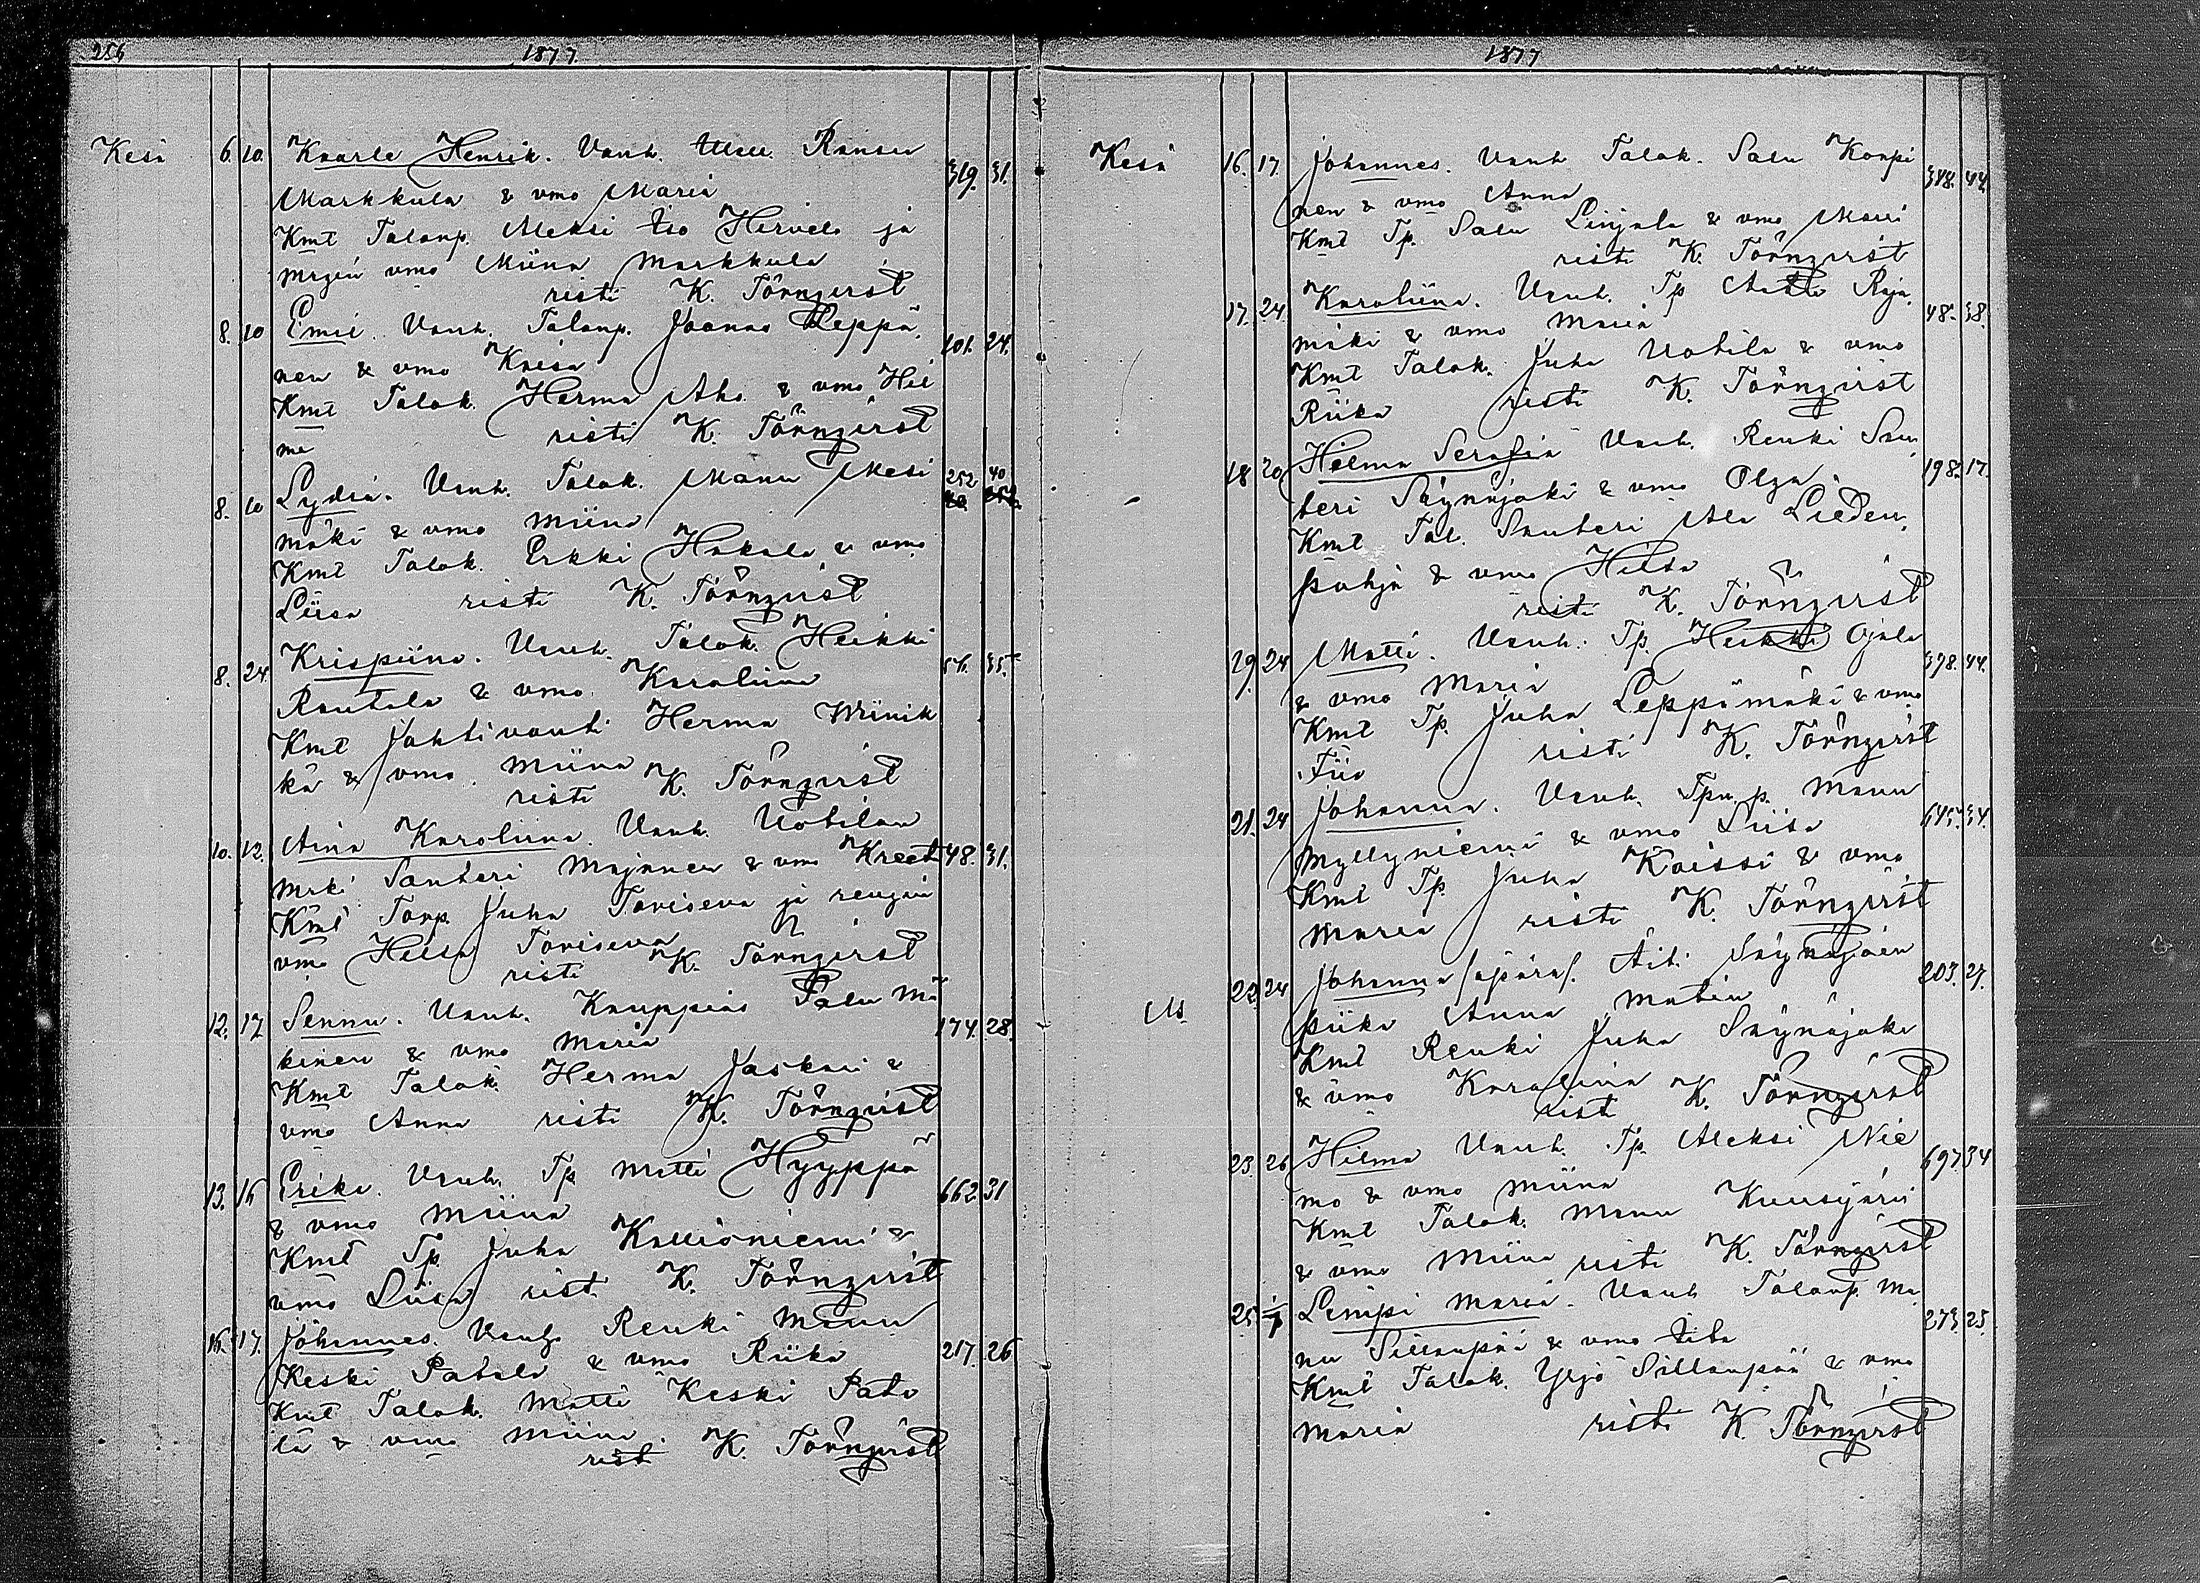 256
1877.
Kesä 6. 10. Kaarle Henrik. Vanh. Ransu 319. 31.
Markkula & vmo Maria
Kmt Talonp. Aleksi Iso Hirvelä ja
vmo Miina Markkula
risti K. Törnqvist
8. 10 Emil. Vanh. Talonp. Joonas Leppä 101. 24.
nen & vmo Kaisa
Kmt Talok. Herma Aho & vmo Hil
ma risti K. Törnqvist
8. 10 Lydia. Vanh. Talok. Manu Mesi 252 40
mäki & vmo Miina
Kmt Talok. Erkki Hakala & vmo
Liisa risti K. Törnqvist
8. 24. Krispiina. Vanh. Talok. Heikki 56. 35.
Rautala & vmo Karoliina
Kmt Jahtivouti Herma Miinik
kä & vmo Miina
risti K. Törnqvist
10. 12. Aina Karoliina. Vanh. Uotilan 48. 31.
mäki Santeri Majanen & vmo Kreeta
Kmt Torp. Juha Toriseva ja rengin
vmo Hilda Toriseva
risti K. Törnqvist
12. 17 Sennu. Vanh. Kauppias Salu Mä 174. 28.
kinen & vmo Maria
Kmt Talok. Herma Jaskari &
vmo Anna risti K. Törnqvist
13. 16 Erika. Vanh. Tp. Matti Hyyppä 662. 31
& vmo Miina
Kmt Tp. Juha Kallioniemi &
vmo Liisa risti K. Törnqvist
16. 17. Johannes. Vanh. Renki Manu 217. 26
Keski Patala & vmo Riika
Kmt Talok. Matti Keski Pata
la & vmo Miina.
risti K. Törnqvist
1877
Kesä 16. 17. Johannes. Vanh. Talok. Salu Korpi 348. 44.
nen & vmo Anna
Kmt Tp. Salu Linjala & vmo Mari
risti K. Törnqvist
17. 24. Karoliina. Vanh. Tp Antti Raja 48. 38.
mäki & vmo Maria
Kmt Talok. Juha Uotila & vmo
Riika risti K. Törnqvist
18 20 Helma Serafia Vanh. Renki San 198. 17.
teri Säynäjoki & vmo Olga.
Kmt Tal. Santeri Ala Lieden
pohja & vmo Hilda
risti K. Törnqvist
19. 24 Matti. Vanh. Tp. Heikki Ojala 398. 44.
& vmo Maria
Kmt Tp. Juha Leppämäki & vmo
Fiio risti K. Törnqvist
21. 24 Johanna. Vanh. Manu 645. 34.
Myllyniemi & vmo Liisa
Kmt Tp. Juha Koissi & vmo
Maria risti K. Törnqvist
22. 24 Johanna /äpärä/. Äiti Säynäjoen 203. 27.
piika Anna Matin
Kmt Renki Juha Säynäjoki
& vmo Karoliina
risti K. Törnqvist
23. 26 Hilma Vanh. Tp. Aleksi Nie 697 34
mo & vmo Miina
Kmt Talok. Manu Kuusijärvi
& vmo Miina risti K. Törnqvist
25. 1/7 Lempi Maria. Vanh. Talonp. Ma 273. 25.
nu Sillanpää & vmo
Kmt Talok. Yrjö Sillanpää & vmo
Maria risti K. Törnqvist